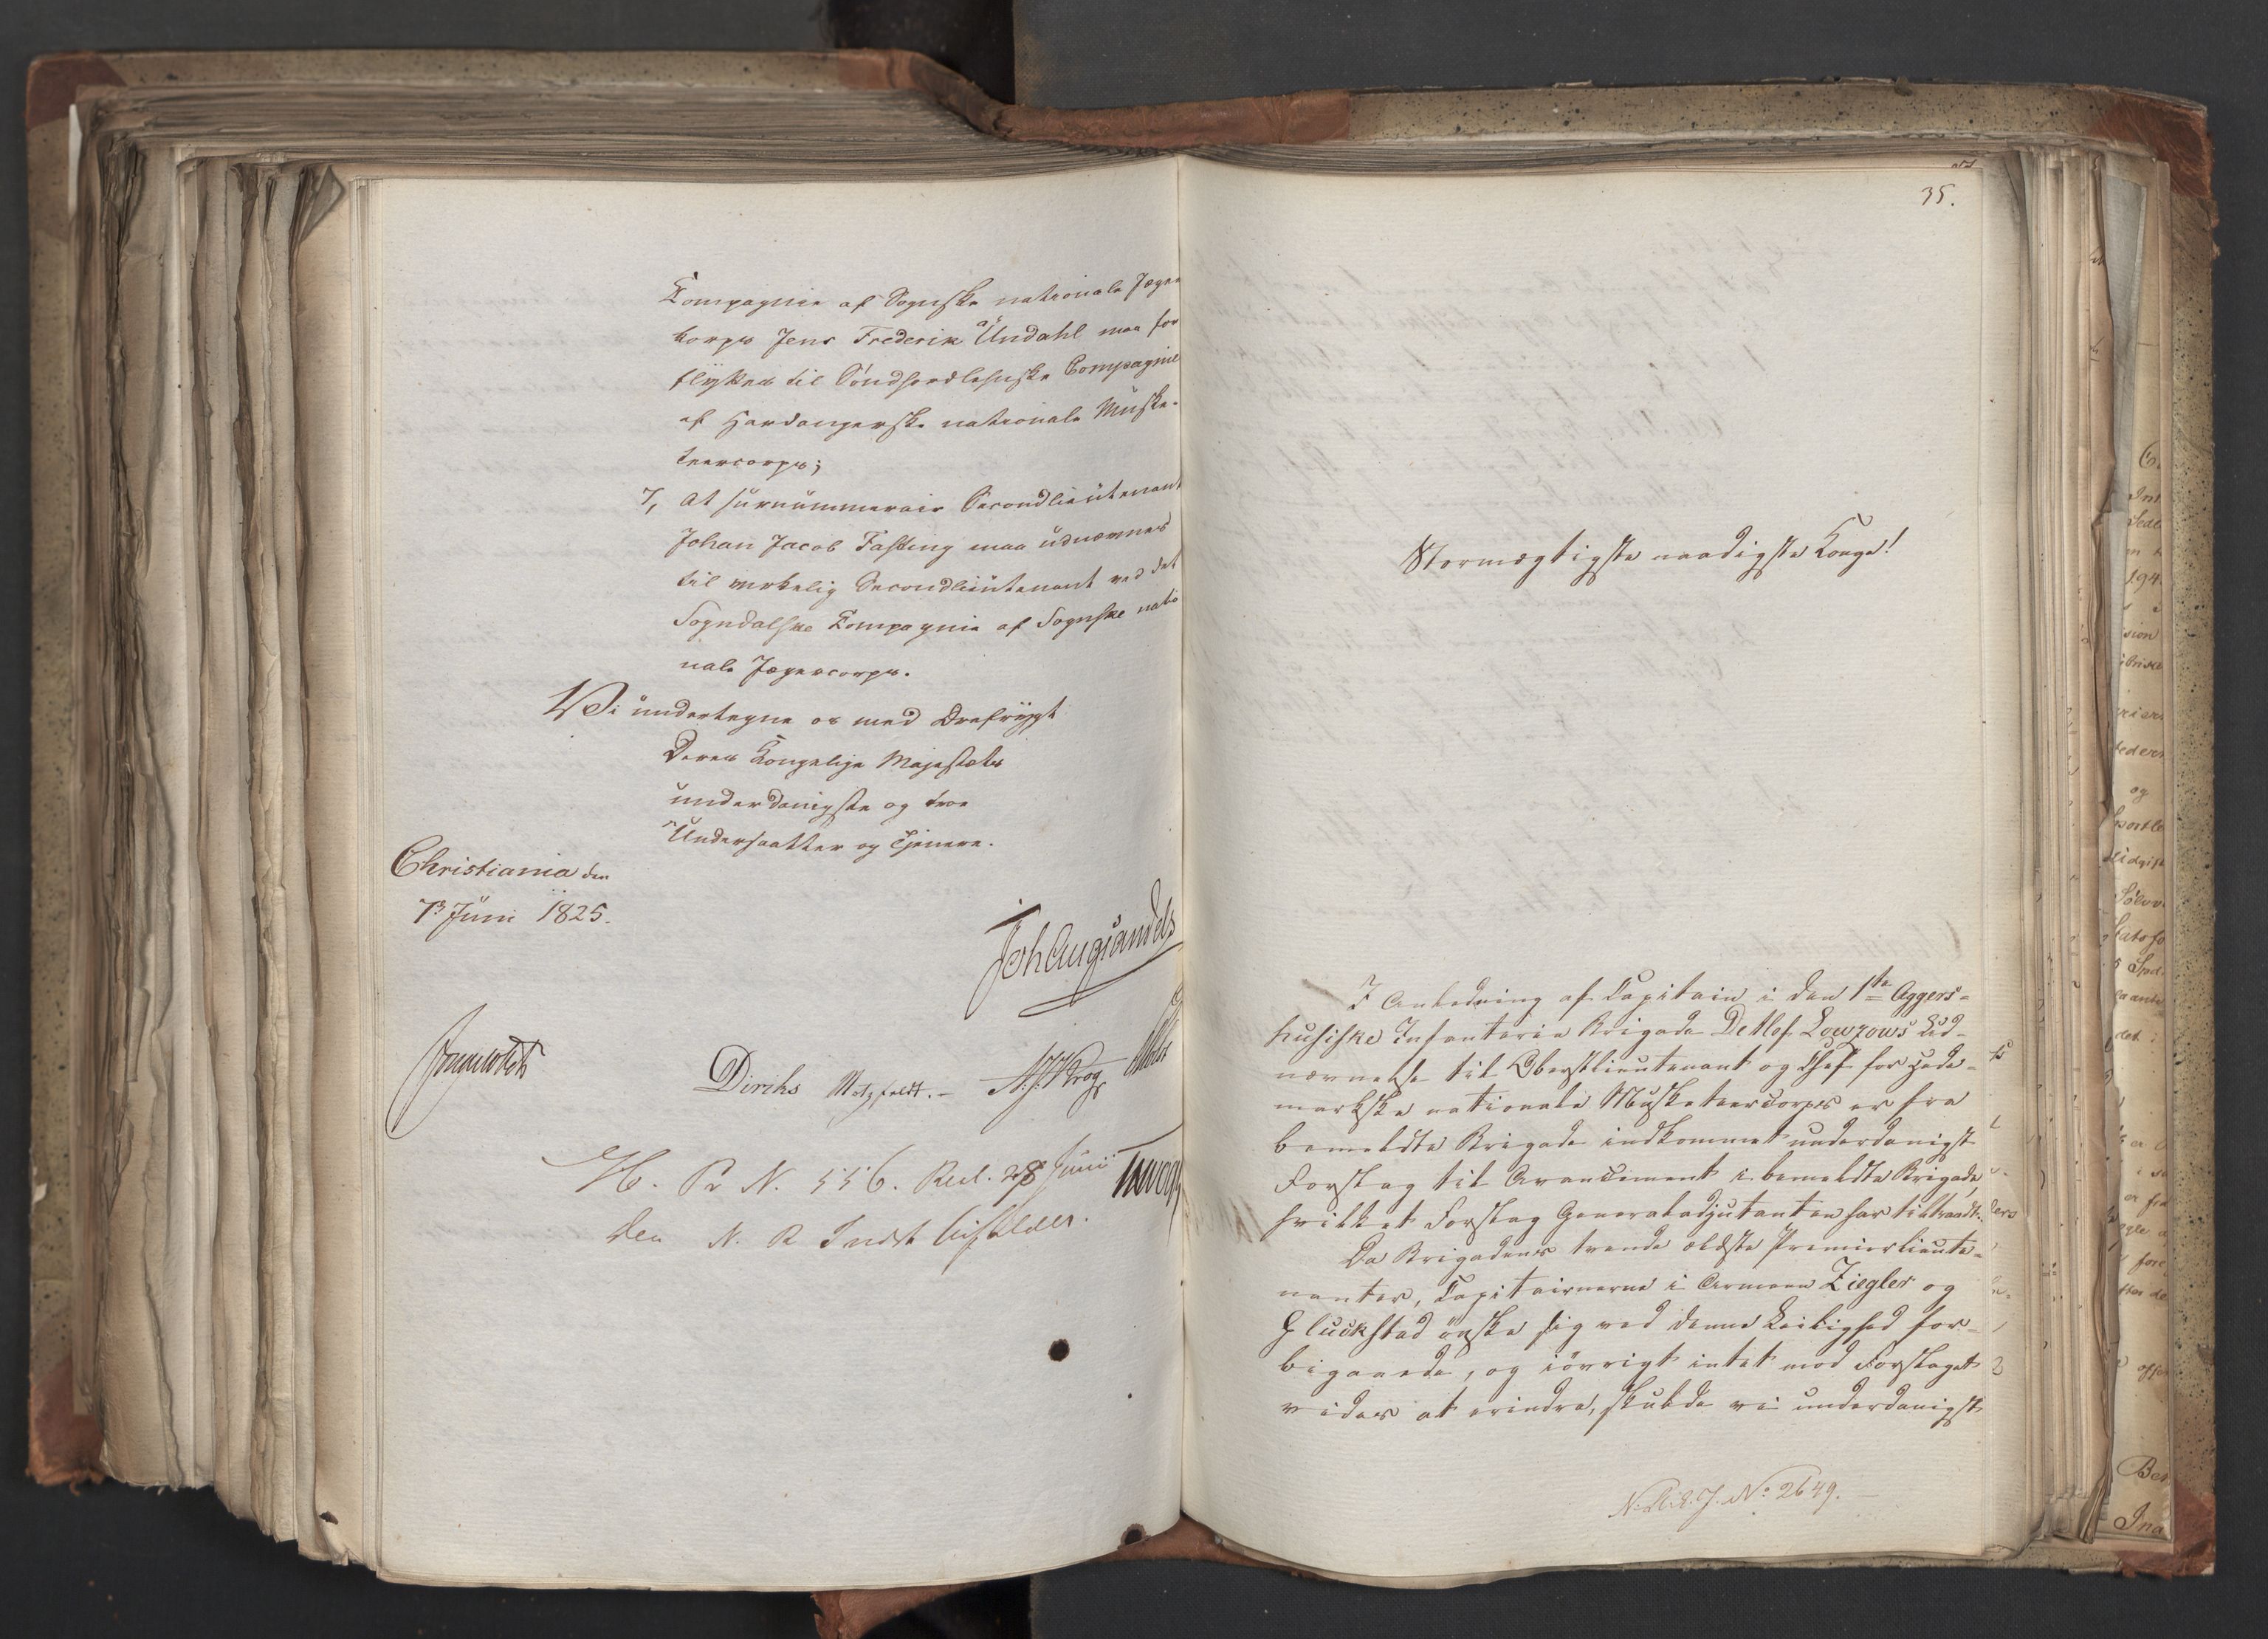 Compagnie af Sognske nationale Jæger
korps Jens Frederik Undahl maa for
flyttes til Söndhordlehnske Compagnie
af Hardangerske nationale Muske-
teercorps;
7, at surnummerair Secondlieutenant
Johan Jacob Fasting maa udnævnes
til virkelig Secondlieutenant ved det
Sogndalske Compagnie af Sognske natio
nale Jægercorps.
Vi undertegne os med Ærefrygt
Deres Kongelige Majestæts
underdanigste og troe
Undersaatter og Tjenere.
Christiania den
7de Juni 1825.
Joh Aug Sandels
Diriks Motzfeldt. - N. J. Krog
H. Pr N. 556. Resl. 28 Junii
den N. R Indst bifaldes.
35.
Stormægtigste naadigste Konge!
I Anledning af Capitain i den 1ste Aggers-
husiske Infanterie Brigade Detlof Lowzows Ud-
nævnelse til Oberstlieutenant og Chef for Hede-
markske nationale Musketeercorps er fra
bemeldte Brigade indkommet underdanigst
Forslag til Avancement i bemeldte Brigade,
hvilket Forslag Generaladjutanten har tiltraadt.
Da Brigadens tvende ældste Premierlieute-
nanter, Capitainerne i Armeen Ziegler og
Gluckstad önske sig ved denne Leilighed for-
bigaaede, og iövrigt intet mod Forslaget
vides at erindre, skulde vi underdanigst
No 2649.